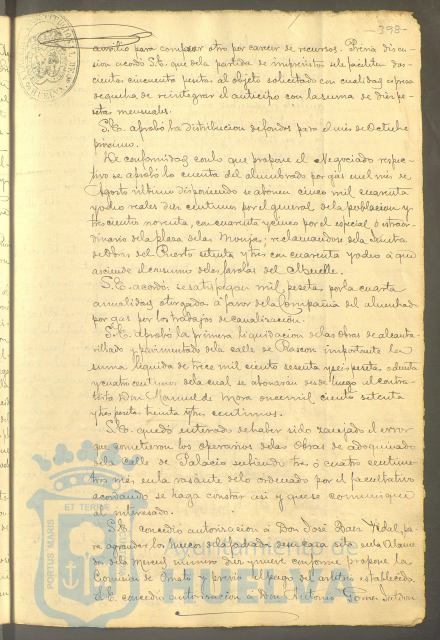 -398-
auxilio para comprar otro por carecer de recursos. Previa discu-
sion acordó S.E. que de la partida de imprevistos se le faciliten dos-
cientas cincuenta pesetas al objeto solicitado con cualidad expresa
de que ha de reintegrar el anticipo con la suma de diez pe-
setas mensuales.
S.E. aprobó la distribucion de fondos para el mes de Octubre
proximo.
De conformidad con lo que propone el Negociado respec-
tivo se aprobó la cuenta del alumbrado por gas en el mes de
Agosto último disponiendo se abonen cinco mil cuarenta
y ocho reales diez centimos por el general de la poblacion y
trescientos noventa, con cuarenta y cinco por el especial ó estraor-
dinario de la plaza de las Monjas, reclamandose de la Junta
de Obras del Puerto setenta y tres con cuarenta y ocho á que
asciende el consumo de las farolas del Muelle.
S.E. acordó se satisfagan mil pesetas por la cuarta
anualidad otorgada á favor de la Compañia del alumbrado
por gas por los trabajos de canalizacion.
S.E. aprobó la primera liquidacion de las obras de alcanta-
rillado y pavimentado de la calle de Rascon importante la
suma líquida de trece mil ciento sesenta y seis pesetas
y cuatro centimos de la cual se abonarán desde luego al contra-
tista Don Manuel de Mora once mil ciento setenta
y tres pesetas treinta y tres centimos.
S.E. quedó enterado de haber sido zanjado el error
que cometieron los operarios de las Obras de adoquinado
de la calle de Palacio subiendo tres ó cuatro centime-
tros más en la rasante de lo ordenado por el facultativo
acordando se haga constar asi y que se comunique
al interesado.
S.E. concedió autorizacion á Don José Baez Vidal, pa-
ra agrandar los huecos de la fachada de su casa sita en la Alame-
da de la Merced número diez y nueve conforme propone la
Comision de Ornato y previo el pago del arbitrio establecido.
S.E. concedió autorizacion á Don Antonio Gomez
Ayuntamiento de
HUELVA
PORTUS MARIS
ET TERRAE